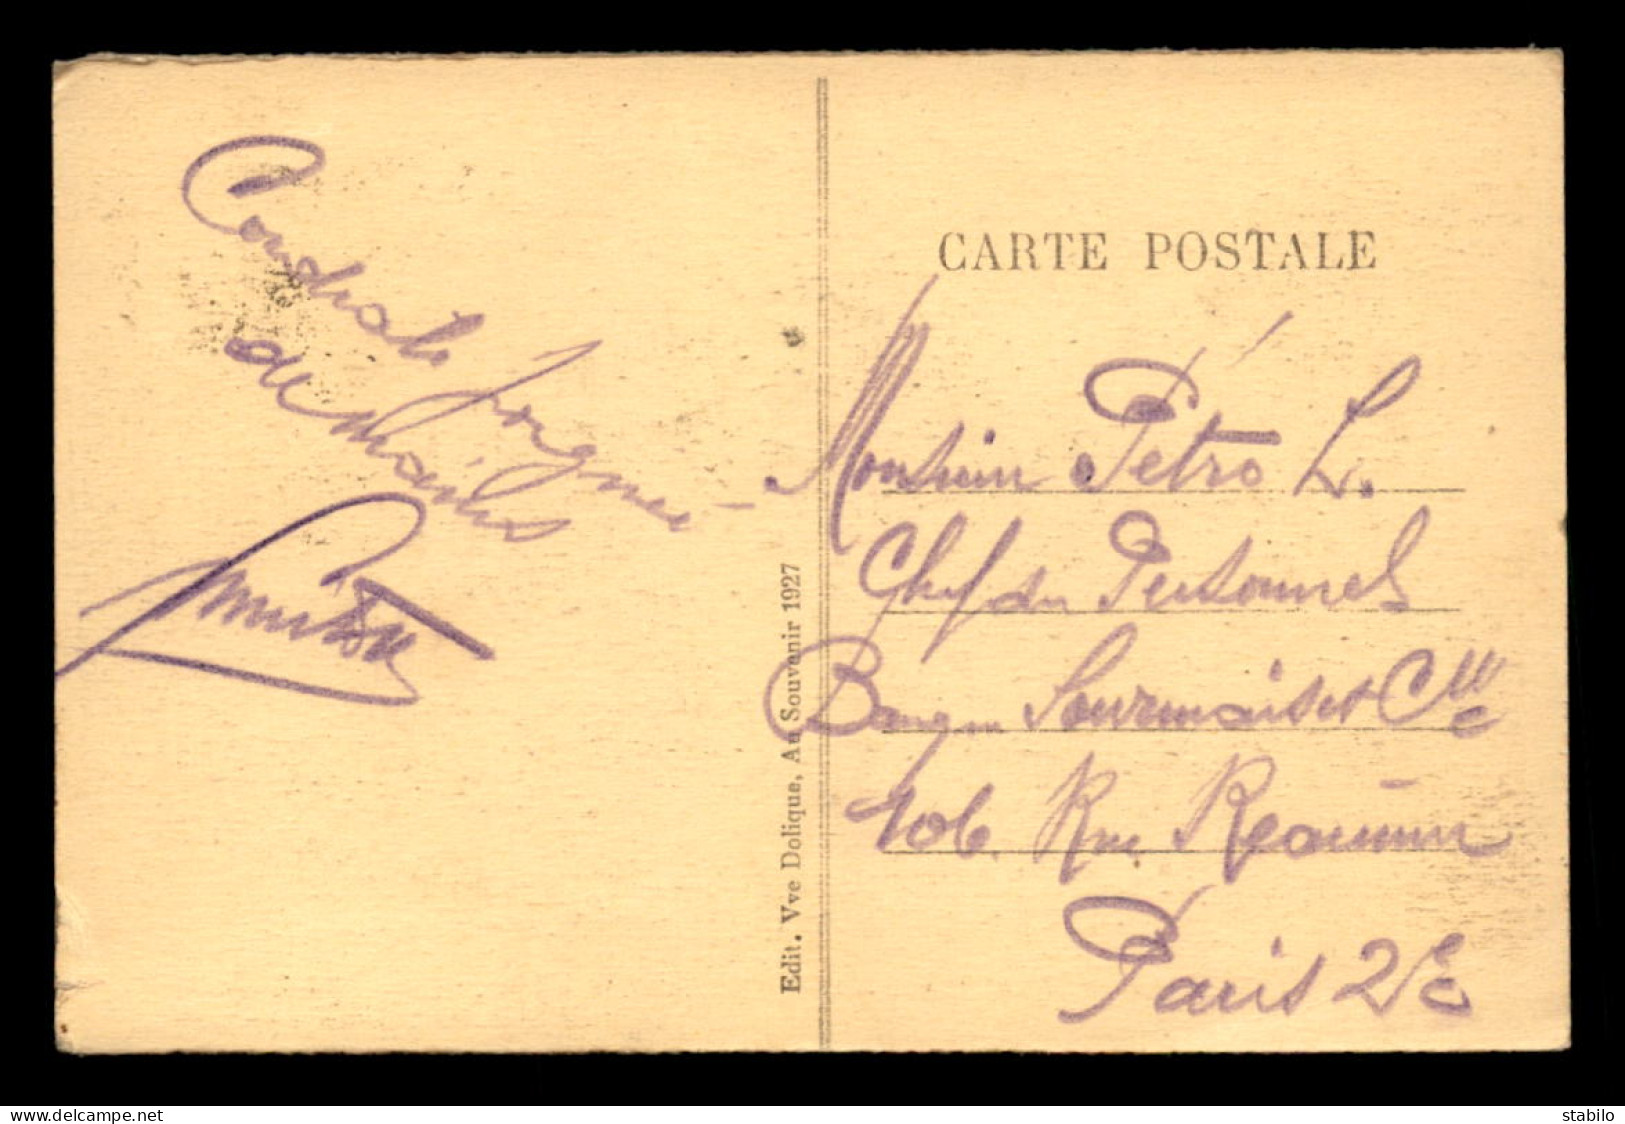 Cordiale poignée
de mains
CARTE POSTALE
Monsieur Pétro L.
Chef du Personnel
Banque Sourmais et Cie
106. Rue Reaumur
Paris 2e
Edit. Vve Dolique, Au Souvenir 1927
delcampe.net
stabilo